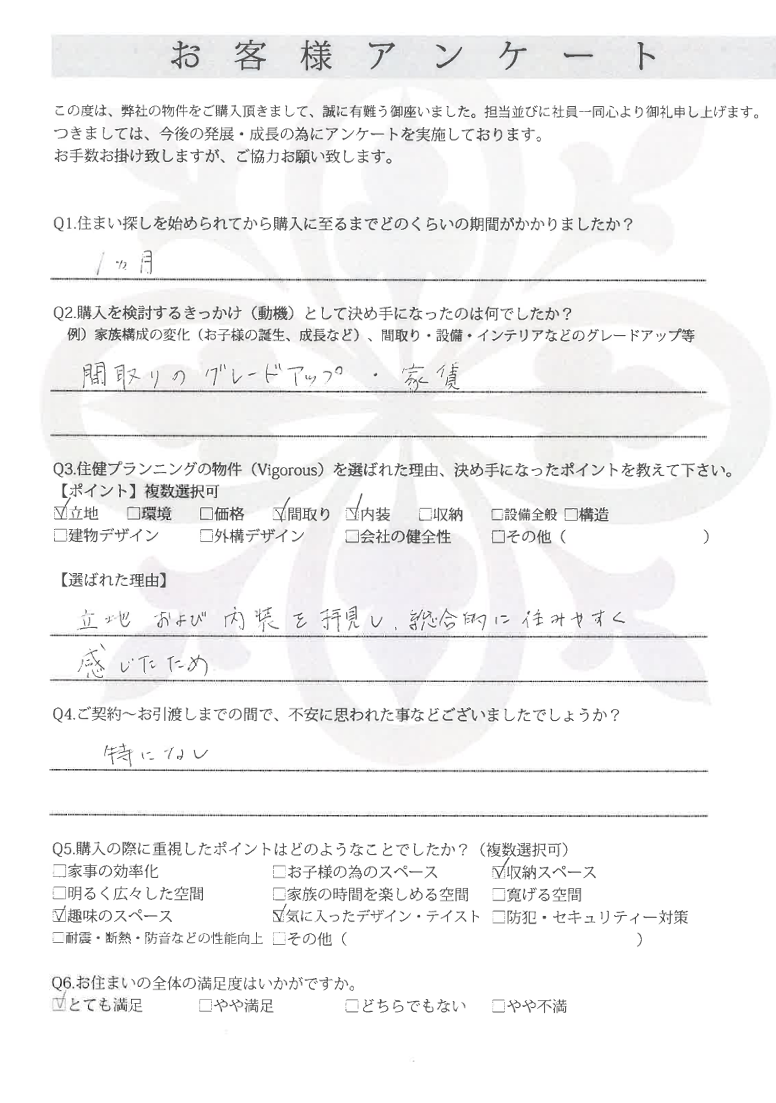 お客様アンケート
この度は、弊社の物件をご購入頂きまして、誠に有難う御座いました。担当並びに社員一同心より御礼申し上げます。
つきましては、今後の発展・成長の為にアンケートを実施しております。
お手数お掛け致しますが、ご協力お願い致します。
Q1.住まい探しを始められてから購入に至るまでどのくらいの期間がかかりましたか？
1ヵ月
Q2.購入を検討するきっかけ（動機）として決め手になったのは何でしたか？
例）家族構成の変化（お子様の誕生、成長など）、間取り・設備・インテリアなどのグレードアップ等
間取りのグレードアップ・家賃
Q3.住健プランニングの物件（Vigorous）を選ばれた理由、決め手になったポイントを教えて下さい。
【ポイント】複数選択可
☑立地 □環境 □価格 ☑間取り ☑内装 □収納 □設備全般 □構造
□建物デザイン □外構デザイン □会社の健全性 □その他（ ）
【選ばれた理由】
立地および内装を拝見し、総合的に住みやすく
感じたため
Q4.ご契約～お引渡しまでの間で、不安に思われた事などございましたでしょうか？
特になし
Q5.購入の際に重視したポイントはどのようなことでしたか？（複数選択可）
□家事の効率化 □お子様の為のスペース ☑収納スペース
□明るく広々した空間 □家族の時間を楽しめる空間 □寛げる空間
☑趣味のスペース ☑気に入ったデザイン・テイスト □防犯・セキュリティー対策
□耐震・断熱・防音などの性能向上 □その他（ ）
Q6.お住まいの全体の満足度はいかがですか。
☑とても満足 □やや満足 □どちらでもない □やや不満